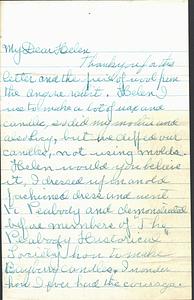 My Dear Helen
Thank you for the
letter and the full of wool from
the angora rabbit. Helen I
use to make a lot of wax and
candles, so did my mother and
also they, but we dipped our
candles, not using molds.
Helen would you believe
it, I dressed up in an old
fashioned dress and went
to Peabody and demonstrated
before members of The
Peabody Historical
Society how to make
Bayberry Candles, I wonder
how I ever had the courage.